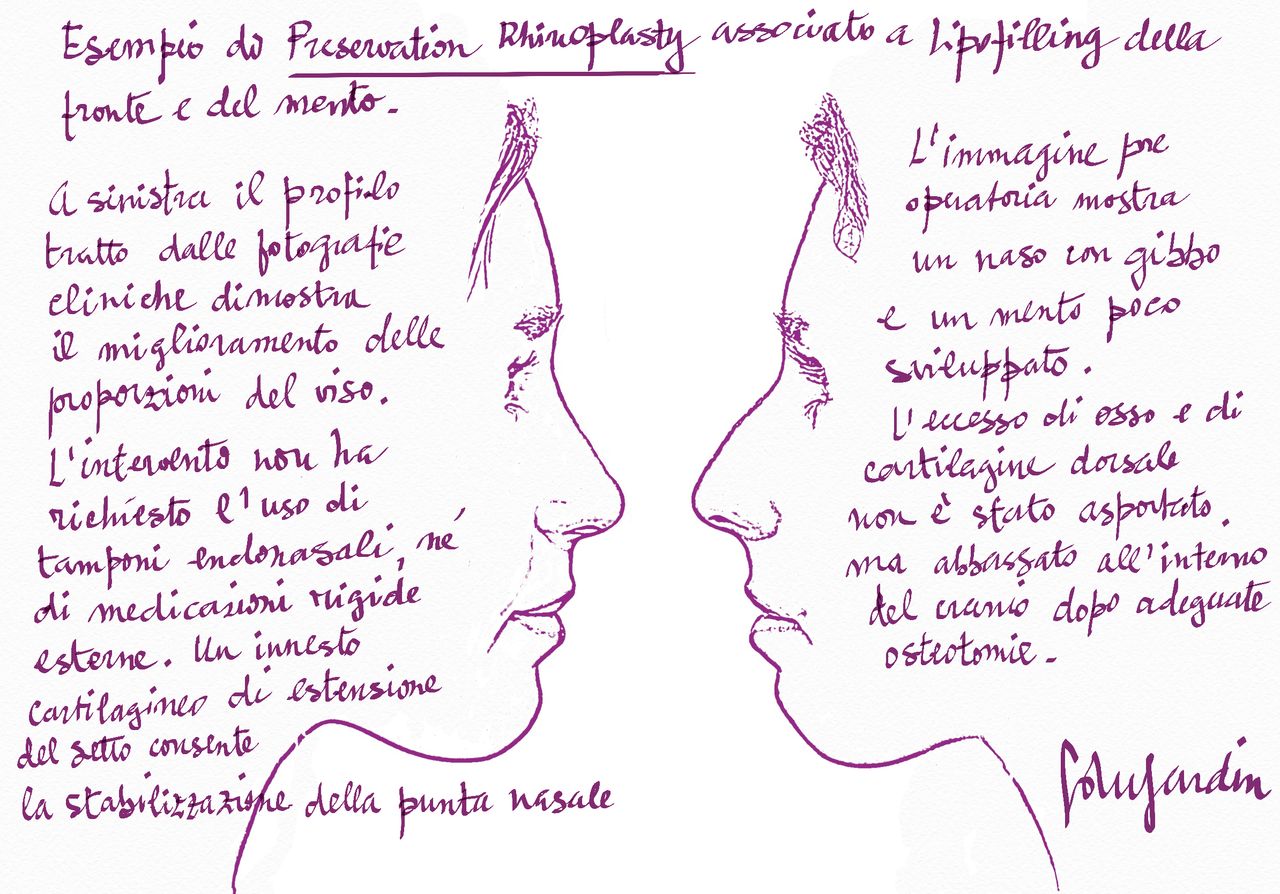 Esempio di Preservation Rhinoplasty associato a Lipofilling della
fronte e del mento.
A sinistra il profilo
tratto dalle fotografie
cliniche dimostra
il miglioramento delle
proporzioni del viso.
L'intervento non ha
richiesto l'uso di
tamponi endonasali, né
di medicazioni rigide
esterne. Un innesto
cartilagineo di estensione
del setto consente
la stabilizzazione della punta nasale
L'immagine pre
operatoria mostra
un naso con gibbo
e un mento poco
sviluppato.
L'eccesso di osso e di
cartilagine dorsale
non è stato asportato,
ma abbassato all'interno
del cranio dopo adeguate
osteotomie.